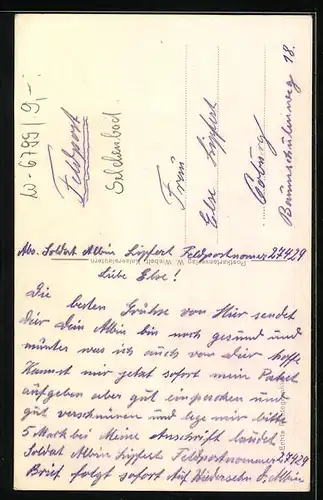 W-6799/9,-
Feldpost
Selchenbach
Frau
Else Lipfert
Coburg
Baumschulenweg 18.
Abs. Soldat Albin Lipfert Feldpostnomer 27429
Postkartenverlag W. Wiebelt, Kaiserslautern
Liebe Else!
Die besten Grühse von Hier sendet
dier Dein Albin bin noch gesund und
munter was ich auch von dier hoffe
Kannst mir jetzt sofort mein Paket
aufgeben aber gut einpacken und
gut verschnüren und lege mir bitte
5 Mark bei Meine Anschrift lautet
Soldat Albin Lipfert Feldpostnommer 27429
Brief folgt sofort Auf Wiedersehn D. Albin